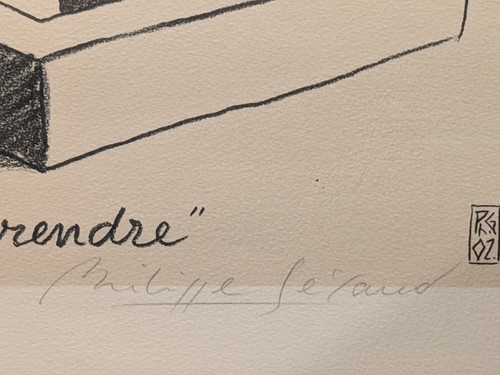 rendre"
Philippe Géraud
PhG
02.